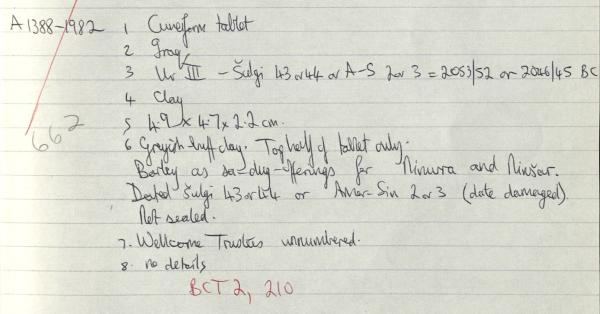 A 1388-1982 1 Cuneiform tablet
2 Iraq
3 Ur III - Šulgi 43 or 44 or A-S 2 or 3 = 2053/52 or 2046/45 BC
4 Clay
662
5 4.9 x 4.7 x 2.2 cm.
6 Greyish-buff clay. Top half of tablet only.
Barley as sa-dug-offerings for Ninura and Ninšar.
Dated Šulgi 43 or 44 or Amar-Sin 2 or 3 (date damaged).
Not sealed.
7. Wellcome Trustees unnumbered.
8. no details
BCT 2, 210